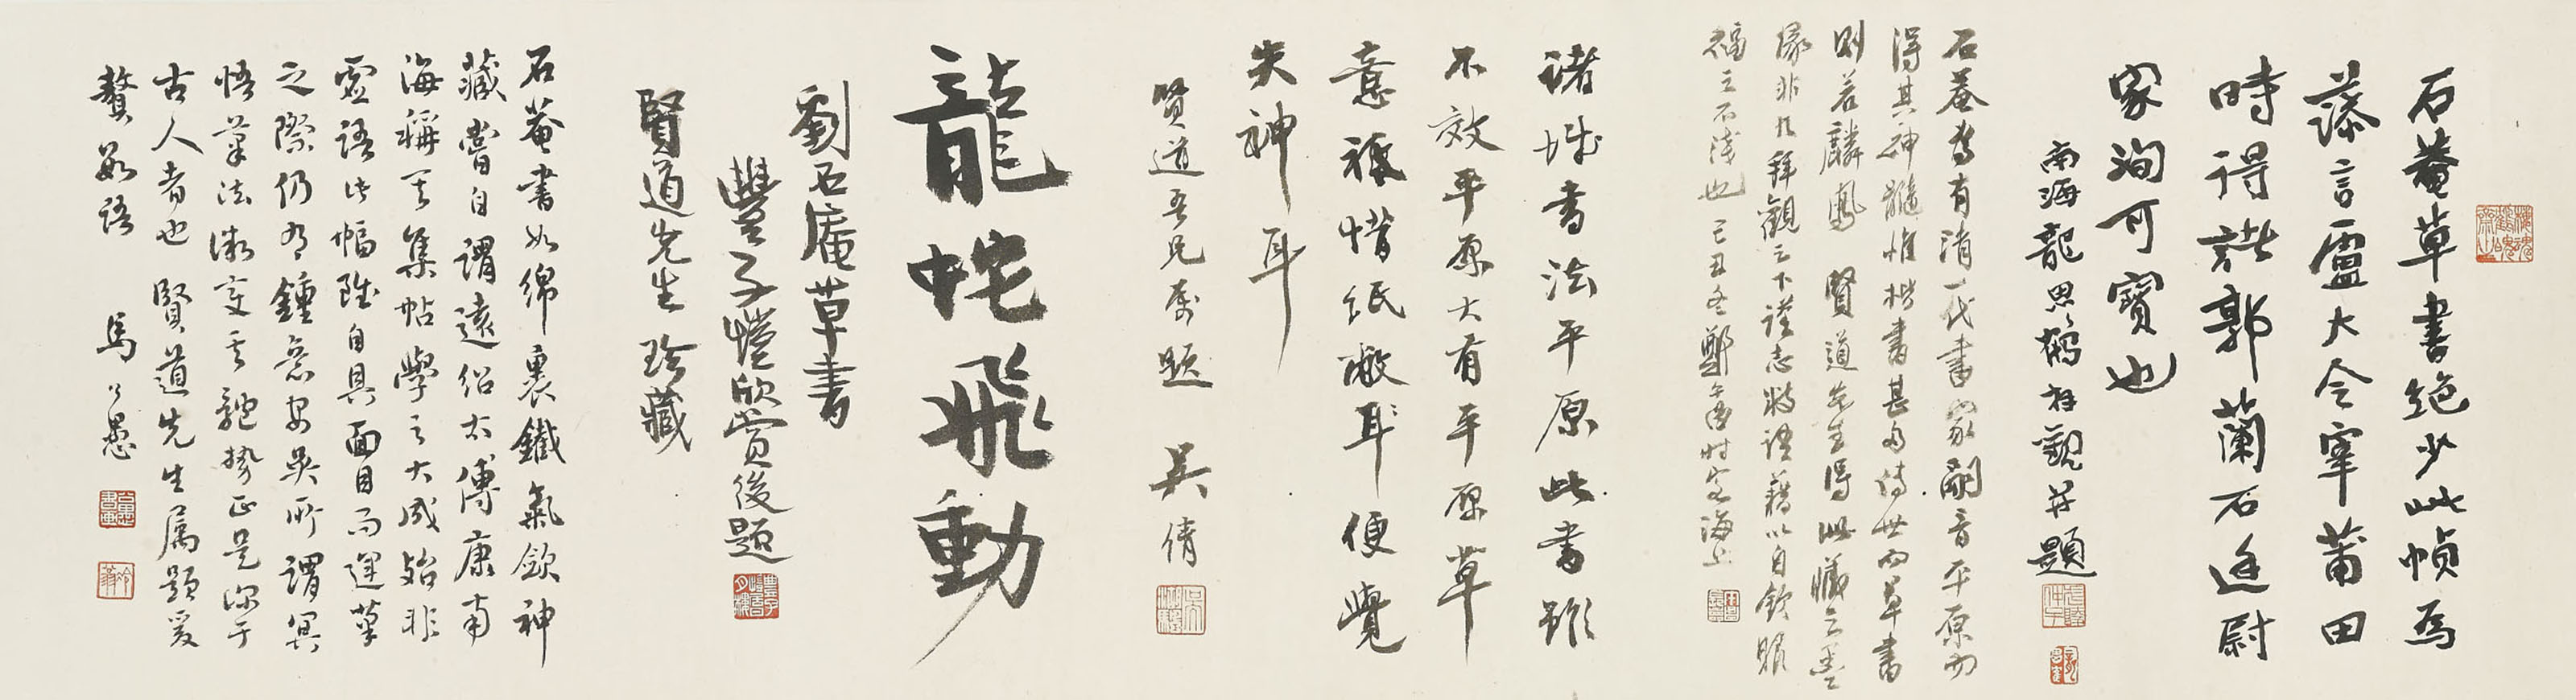 石菴草書絕少此幀爲
藻言盧大令宰莆田
時得諸郭蘭石廷尉
家洵可寶也
南海龍思鶴拜觀并題
石菴為有清一代書家嗣音平原而
得其神髓惟楷書甚多傳世而草書
則若麟鳳 賢道先生得此藏之墨
緣非凡拜觀之下謹志數語藉以自欽眼
福之不淺也 己丑冬鄭午昌時客海上
諸城書法平原此書雖
不效平原大有平原草
意秪惜紙敝耳便覺
失神耳
賢道吾兄属題 吴倩
龍蛇飛動
劉石庵草書
豐子愷欣賞後題
賢道先生珍藏
石菴書如綿裹鐵氣歛神
藏嘗自謂遠紹太傅康南
海稱其集帖學之大成殆非
虛語此幅雖自具面目而運筆
之際仍有鍾意安吳所謂冥
悟筆法微變其體勢正是深于
古人者也 賢道先生属題爰
贅數語 馬公愚